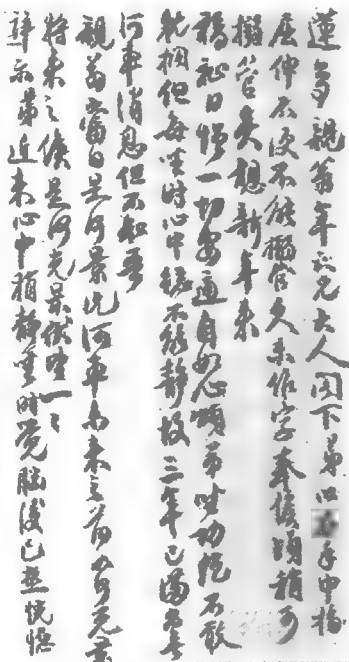 蓮舫親翁年記兄大人閣下弟以手中指
屈伸不便不能搦管久未作字奉候頃稍可
搦管矣想新年來
福祉日增一切安適自如心頌弟坐功總不敢
乾擱但每坐時心中總不能靜故三年已滿尚無
河車消息但不知吾
親翁當日是何景況河車未來之前如何光景
將來之候是何光景伏望一一
詳示弟近來心中稍靜坐時覺腦後已熱恍惚